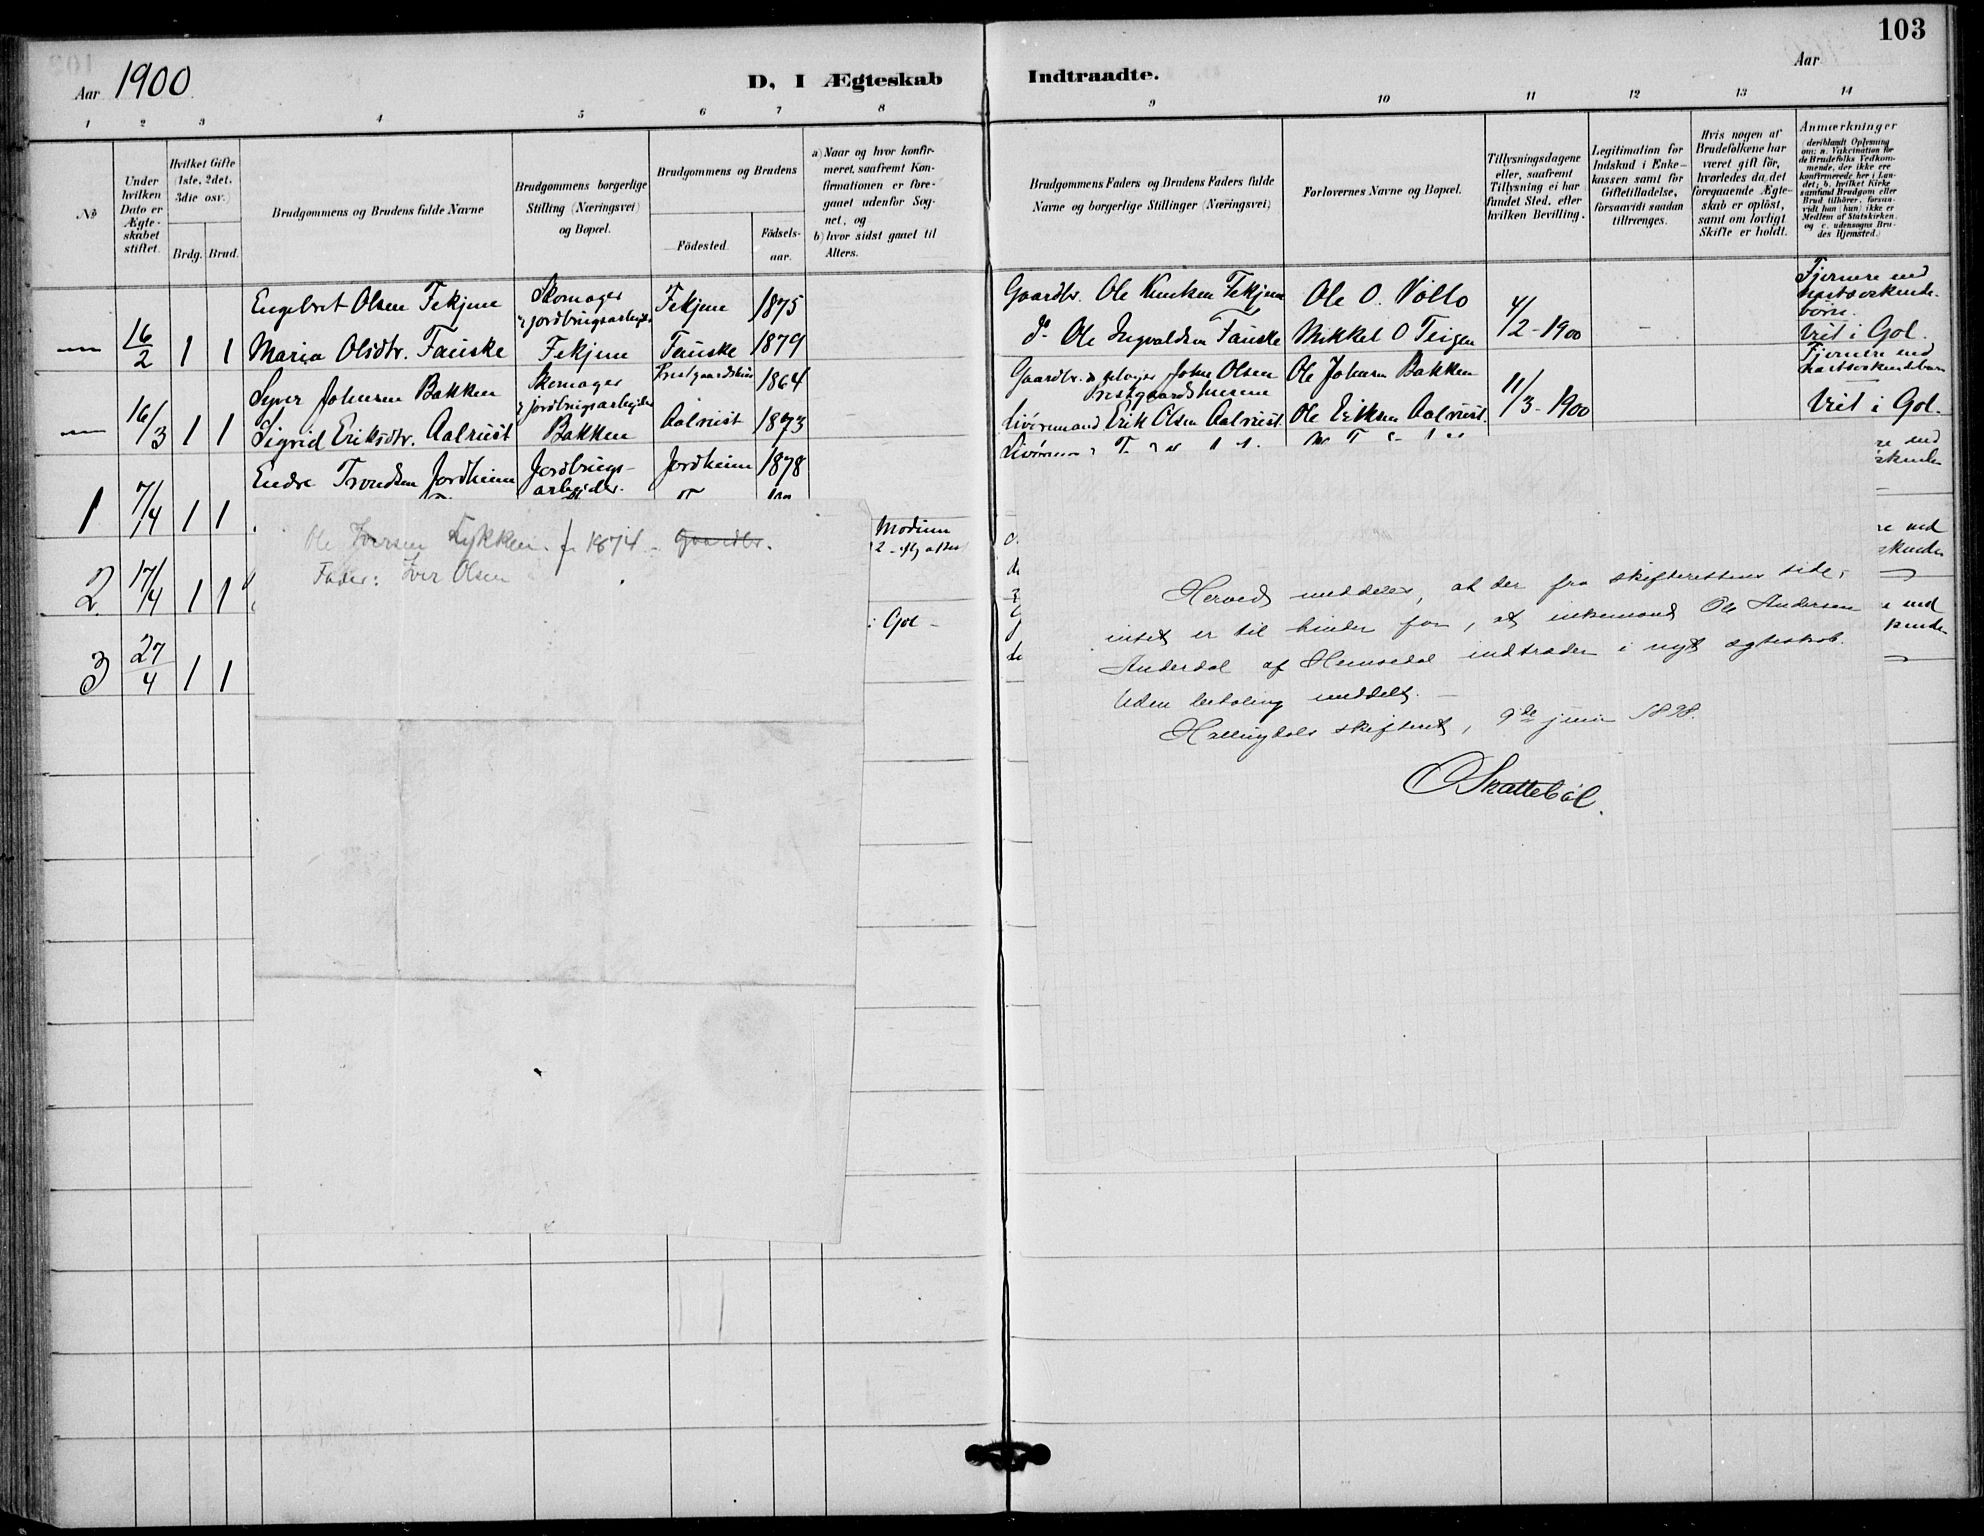 103
Aar 1900.
D, I Ægteskab Indtraadte.
Aar
1 2 3 4 5 6 7 8
9 10 11 12 13 14
No
Under hvilken Dato er Ægteskabet stiftet.
Hvilket Gifte (1ste, 2det, 3die osv.)
Brdg. Brud.
Brudgommens og Brudens fulde Navne
Brudgommens borgerlige Stilling (Næringsvei) og Bopæl.
Brudgommens og Brudens
Födested.
Födselsaar.
a) Naar og hvor konfirmeret, saafremt Konfirmationen er foregaaet udenfor Sognet, og
b) hvor sidst gaaet til Alters.
Brudgommens Faders og Brudens Faders fulde Navne og borgerlige Stillinger (Næringsvei)
Forlovernes Navne og Bopæl.
Tillysningsdagene eller, saafremt Tillysning ei har fundet Sted, efter hvilken Bevilling.
Legitimation for Indskud i Enkekassen samt for Giftetilladelse, forsaavidt saadan tiltrænges.
Hvis nogen af Brudefolkene har været gift för, hvorledes da det foregaaende Ægteskab er oplöst, samt om lovligt Skifte er holdt.
Anmærkninger
(deriblandt Oplysning om: a. Vakcination for de Brudefolks Vedkommende, der ikke ere konfirmerede her i Landet; b. hvilket Kirkesamfund Brudgom eller Brud tilhörer, forsaavidt han (hun) ikke er Medlem af Statskirken, og c. udensogns Brudes Hjemsted.)
16/2 1 1
Engebret Olsen Fekjene Skomager & jordbrugsarbejder Fekjene 1875
Maria Olsdtr. Fauske Fekjene Fauske 1879
Gaardbr. Ole Knutsen Fekjene Ole O. Vollo 4/2 - 1900
do Ole Ingvaldsen Fauske Mikkel O Teigen
Fjernere end
børn.
Viet i Gol.
16/3 1 1
Syver Johnsen Bakken Skomager & jordbrugsarbejder 1864
Sigrid Eriksdtr. Aalrust Bakken Aalrust 1873
John Olsen Ole Johnsen Bakken 11/3 - 1900
Erik Olsen Aalrust. Ole Eriksen Aalrust.
Fjernere end
Viet i Gol.
1 7/4 1 1
Endre Trondsen Jordheim Jordbrugsarbejder. Jordheim 1878
2 17/4 1 1
3 27/4 1 1
Modum
i Gol -
Ole Iversen Lykken. f 1874 - Gaardbr.
Fader: Iver Olsen
Herved meddeles, at der fra skifterettens side,
intet er til hinder for, at enkemand Ole Andersen
Anderdal af Hemsedal indtræder i nyt ægteskab.
Uden betaling meddelt. -
Hallingdals skifteret, 9de juni 1898.
O Skattebøl.